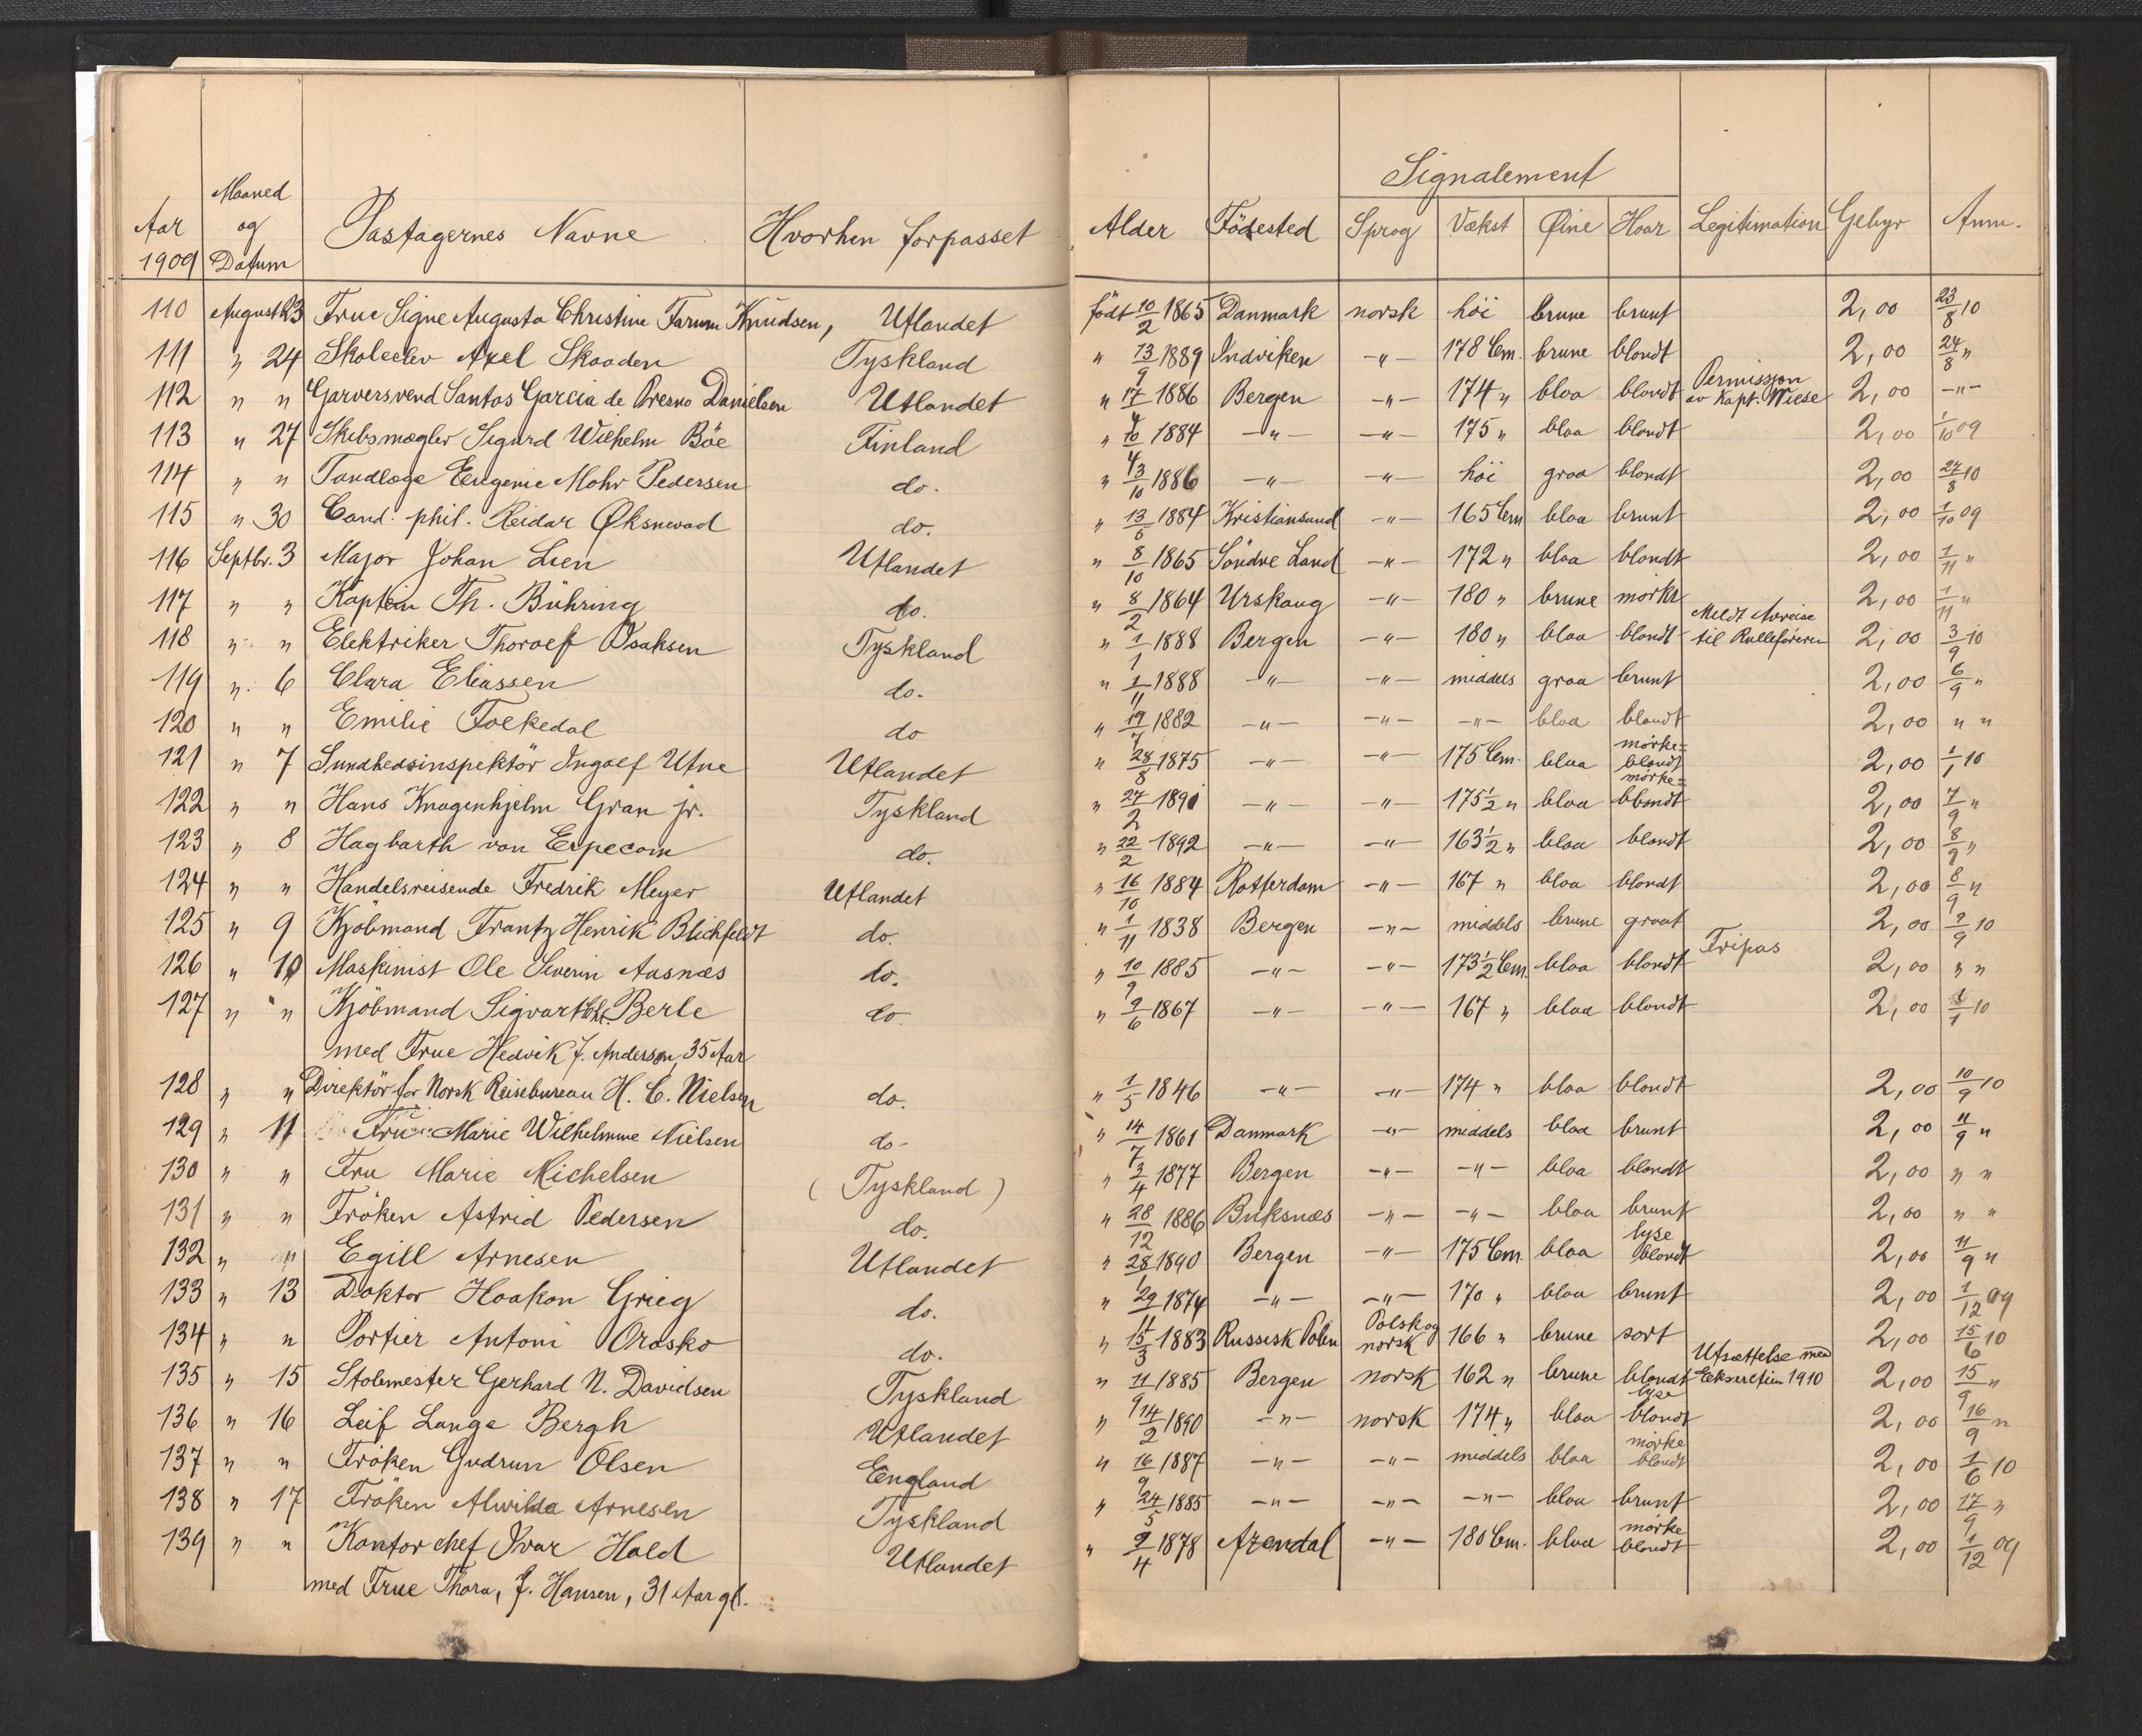 Signalement
Aar 1909 Maaned og Datum Pastagernes Navne Hvorhen forpasset Alder Födested Sprog Vækst Øine Haar Legitimation Gebyr Anm.
110 August 23 Frue Signe Augusta Christine Farum Knudsen, Utlandet født 10/2 1865 Danmark norsk höi brune brunt 2,00 23/8 10
111 " 24 Skoleelev Axel Skaaden Tyskland " 13/9 1889 Indviken -"- 178 Cm. brune blondt 2,00 24/8 "
112 " " Garversvend Santos Garcia de Presno Danielsen Utlandet " 17/4 1886 Bergen -"- 174 " blaa blondt Permission av Kapt. Wiese 2,00 -"-
113 " 27 Skibsmægler Sigurd Wilhelm Böe Finland " 1884 -"- -"- 175 " blaa blondt 2,00 1/10 09
114 " " Tandlæge Eugenie Mohr Pedersen do. " 1886 -"- -"- höi graa blondt 2,00 27/8 10
115 " 30 Cand. phil. Reidar Øksnevad do. " 13/5 1884 Kristiansund -"- 165 Cm blaa brunt 2,00 1/10 09
116 Septbr. 3 Major Johan Lien Utlandet " 8/10 1865 Söndre Land -"- 172 " blaa blondt 2,00 1/11 "
117 " " Kaptein Th. Bühring do. " 8/2 1864 Urskaug -"- 180 " brune mörkt 2,00 1/11 "
118 " " Elektriker Thoralf Isaksen Tyskland " 1/1 1888 Bergen -"- 180 " blaa blondt Meldt Avreise til Rulleføreren 2,00 3/9 10
119 " 6 Clara Eliassen do. " 1/11 1888 -"- -"- middels graa brunt 2,00 6/9 "
120 " " Emilie Folkedal do " 19/7 1882 -"- -"- -"- blaa blondt 2,00 " "
121 " 7 Sundhedsinspektör Ingolf Utne Utlandet " 28/8 1875 -"- -"- 175 Cm. blaa mörke= blondt 2,00 1/1 10
122 " " Hans Knagenhjelm Gran jr. Tyskland " 27/2 1891 -"- -"- 175½ " blaa mörke= blondt 2,00 7/9 "
123 " 8 Hagbarth von Erpecom do. " 22/2 1892 -"- -"- 163½ " blaa blondt 2,00 8/9 "
124 " " Handelsreisende Fredrik Meyer Utlandet " 16/10 1884 Rotterdam -"- 167 " blaa blondt 2,00 8/9 "
125 " 9 Kjöbmand Frantz Henrik Blichfeldt do. " 1/11 1838 Bergen -"- middels brune graat 2,00 9/9 10
126 " 10 Maskinist Ole Severin Aasnæs do. " 10/9 1885 -"- -"- 173½ Cm. blaa blondt Fripas 2,00 " "
127 " " Kjöbmand Sigvart Chr. Berle do. " 9/6 1867 -"- -"- 167 " blaa blondt 2,00 1/1 10
med Frue Hedvik f. Anderson, 35 Aar
128 " " Direktör for Norsk Reisebureau H. C. Nielsen do. " 1/5 1846 -"- -"- 174 " blaa blondt 2,00 10/9 10
129 " 11 Frue Marie Wilhelmine Nielsen do- " 14/7 1861 Danmark -"- middels blaa brunt 2,00 11/9 "
130 " " Fru Marie Michelsen ( Tyskland ) " 3/4 1877 Bergen -"- -"- blaa blondt 2,00 " "
131 " " Fröken Astrid Pedersen do. " 28/12 1886 Buksnæs -"- -"- blaa brunt 2,00 " "
132 " " Egill Arnesen Utlandet " 28/1 1890 Bergen -"- 175 Cm. blaa lyse blondt 2,00 11/9 "
133 " 13 Doktor Haakon Grieg do. " 29/11 1874 -"- -"- 170 " blaa brunt 2,00 1/12 09
134 " " Portier Antoni Orosko do. " 15/3 1883 Russisk Polen Polsk og norsk 166 " brune sort 2,00 15/6 10
135 " 15 Stolemester Gerhard N. Davidsen Tyskland " 11/9 1885 Bergen norsk 162 " brune blondt Utsættelse med Ekserctien 1910 2,00 15/9 "
136 " 16 Leif Lange Bergh Utlandet " 14/2 1890 -"- norsk 174 " blaa lyse blondt 2,00 16/9 "
137 " " Fröken Gudrun Olsen England " 16/9 1887 -"- -"- middels blaa mörke blondt 2,00 1/6 10
138 " 17 Fröken Alwilda Arnesen Tyskland " 24/5 1885 -"- -"- -"- blaa brunt 2,00 17/9 "
139 " " Kontorchef Ivar Hald Utlandet " 9/4 1878 Arendal -"- 180 Cm. blaa mörke blondt 2,00 1/12 09
med Frue Thora, f. Hansen, 31 Aar gl.